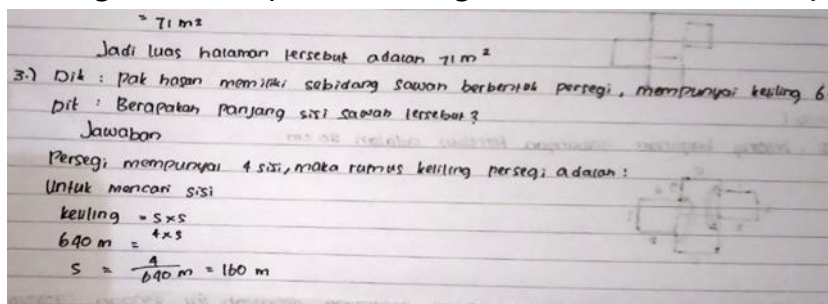 = 71 m²
Jadi luas halaman tersebut adalah 71 m²
3.) Dik : Pak hasan memiliki sebidang sawah berbentuk persegi, mempunyai keliling 6
Dit : Berapakah panjang sisi sawah tersebut?
Jawaban
Persegi mempunyai 4 sisi, maka rumus keliling persegi adalah :
Untuk mencari sisi
keliling = s×s
640 m = 4×s
s = 4/640 m = 160 m